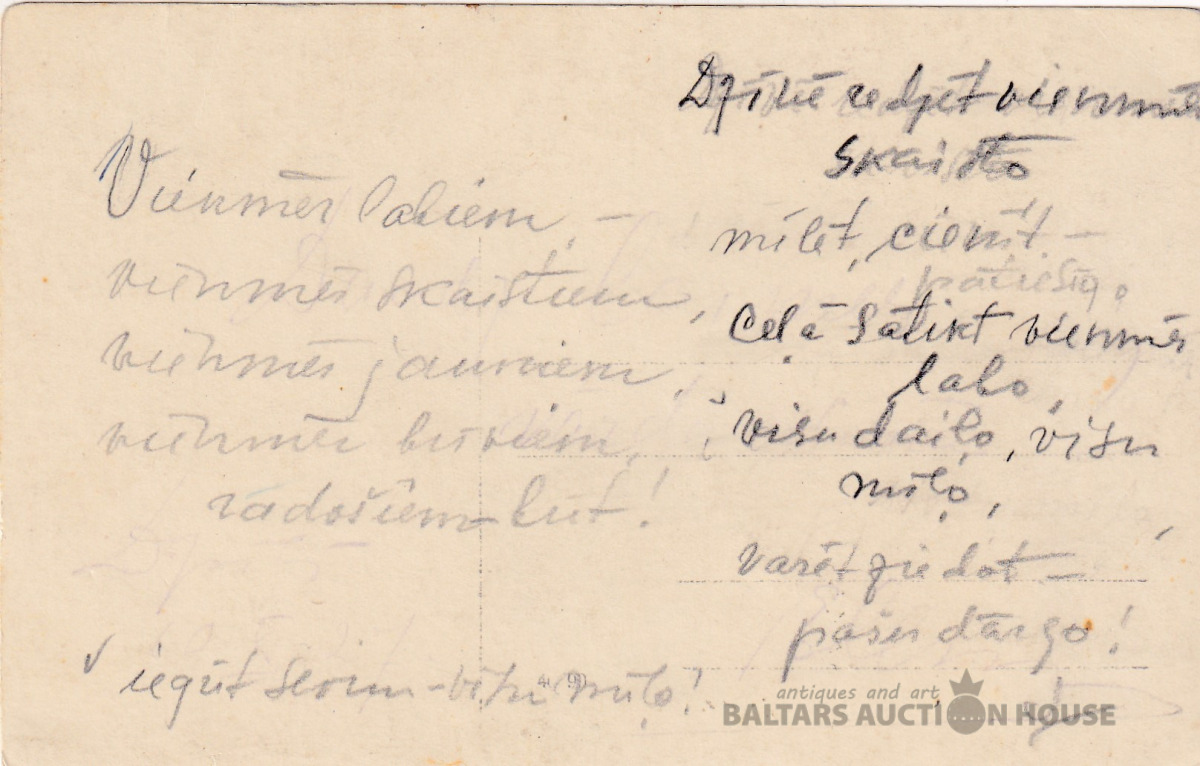 Vienmēr labiem, –
vienmēr skaistiem,
vienmēr jauniem,
vienmēr brīviem,
radošiem – būt!
iegūt sevim – visu mīļo!
Dzīvē redzēt vienmēr
skaisto
mīlēt, cienīt –
patiesīgo
Ceļā satikt vienmēr
labo,
visu daiļo, visu
mīļo,
varēt ziedot –
pašu dārgo!
antiques and art
BALTARS AUCTION HOUSE